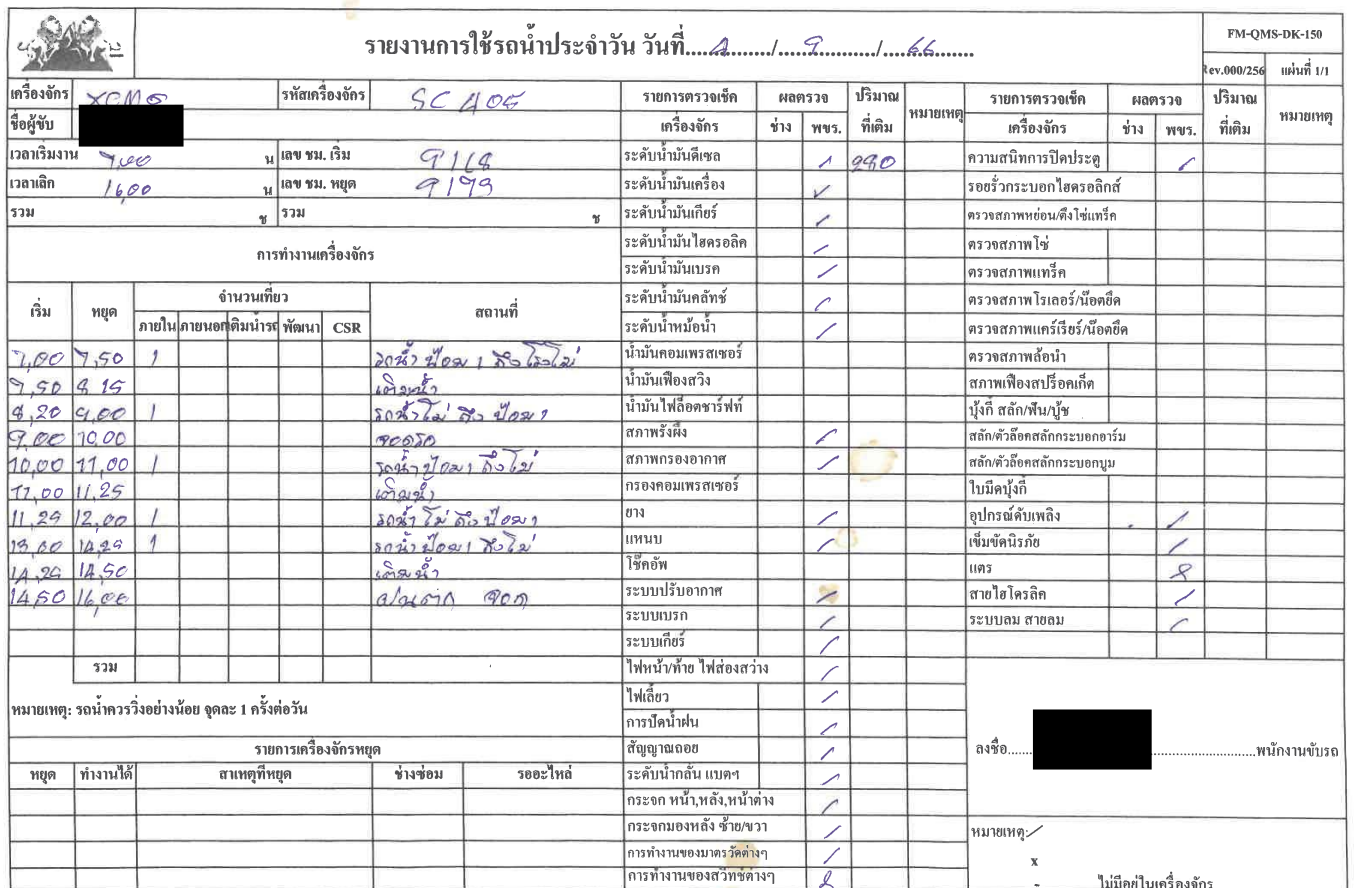 รายงานการใช้รถน้ำประจำวัน วันที่....4......../.....9........../....66.......
FM-QMS-DK-150
Rev.000/256 แผ่นที่ 1/1
เครื่องจักร XCMG รหัสเครื่องจักร SC 405
ชื่อผู้ขับ
เวลาเริ่มงาน 7,00 น เลข ชม. เริ่ม 9168
เวลาเลิก 16,00 น เลข ชม. หยุด
รวม ช รวม ช
การทำงานเครื่องจักร
เริ่ม หยุด จำนวนเที่ยว สถานที่
ภายใน ภายนอก เติมน้ำรถ พัฒนา CSR
7,00 7,50 1 รถน้ำ ป้อม 1 ถึงโรงโม่
7,50 8 15 เติมน้ำ
8,20 9,00 1 รถน้ำโม่ ถึง ป้อม 1
9,00 10,00 จอดรถ
10,00 11,00 1 รถน้ำป้อม 1 ถึงโม่
11,00 11,25 เติมน้ำ
11,25 12,00 1 รถน้ำ โม่ ถึง ป้อม 1
13,00 14,25 1 รถน้ำ ป้อม 1 ถึงโม่
14,25 14,50 เติมน้ำ
14,50 16,00 ฝนตก จอด
รวม
หมายเหตุ: รถน้ำควรวิ่งอย่างน้อย จุดละ 1 ครั้งต่อวัน
รายการเครื่องจักรหยุด
หยุด ทำงานได้ สาเหตุที่หยุด ช่างซ่อม รออะไหล่
รายการตรวจเช็ค ผลตรวจ ปริมาณ หมายเหตุ
เครื่องจักร ช่าง พขร. ที่เติม
ระดับน้ำมันดีเซล / 280
ระดับน้ำมันเครื่อง ✓
ระดับน้ำมันเกียร์ /
ระดับน้ำมันไฮดรอลิค /
ระดับน้ำมันเบรค /
ระดับน้ำมันคลัทช์ /
ระดับน้ำหม้อน้ำ /
น้ำมันคอมเพรสเซอร์
น้ำมันเฟืองสวิง
น้ำมันไฟล็อตชาร์ฟท์
สภาพรังผึ้ง /
สภาพกรองอากาศ /
กรองคอมเพรสเซอร์
ยาง /
แหนบ /
โช๊คอัพ
ระบบปรับอากาศ /
ระบบเบรก /
ระบบเกียร์ /
ไฟหน้า/ท้าย ไฟส่องสว่าง /
ไฟเลี้ยว /
การปัดน้ำฝน /
สัญญาณถอย /
ระดับน้ำกลั่น แบตฯ /
กระจก หน้า,หลัง,หน้าต่าง /
กระจกมองหลัง ซ้าย/ขวา /
การทำงานของมาตรวัดต่างๆ /
การทำงานของสวิทซ์ต่างๆ
รายการตรวจเช็ค ผลตรวจ ปริมาณ หมายเหตุ
เครื่องจักร ช่าง พขร. ที่เติม
ความสนิทการปิดประตู /
รอยรั่วกระบอกไฮดรอลิกส์
ตรวจสภาพหย่อน/ตึงโซ่แทร็ค
ตรวจสภาพโซ่
ตรวจสภาพแทร็ค
ตรวจสภาพโรเลอร์/น๊อตยึด
ตรวจสภาพแคร์เรียร์/น๊อตยึด
ตรวจสภาพล้อนำ
สภาพเฟืองสปร็อคเก็ต
บุ้งกี๋ สลัก/ฟัน/บู้ช
สลัก/ตัวล๊อคสลักกระบอกอาร์ม
สลัก/ตัวล๊อคสลักกระบอกบูม
ใบมีดบุ้งกี๋
อุปกรณ์ดับเพลิง /
เข็มขัดนิรภัย /
แตร
สายไฮโดรลิค /
ระบบลม สายลม /
ลงชื่อ.....................................พนักงานขับรถ
หมายเหตุ: /
x
- ไม่มีอยู่ในเครื่องจักร